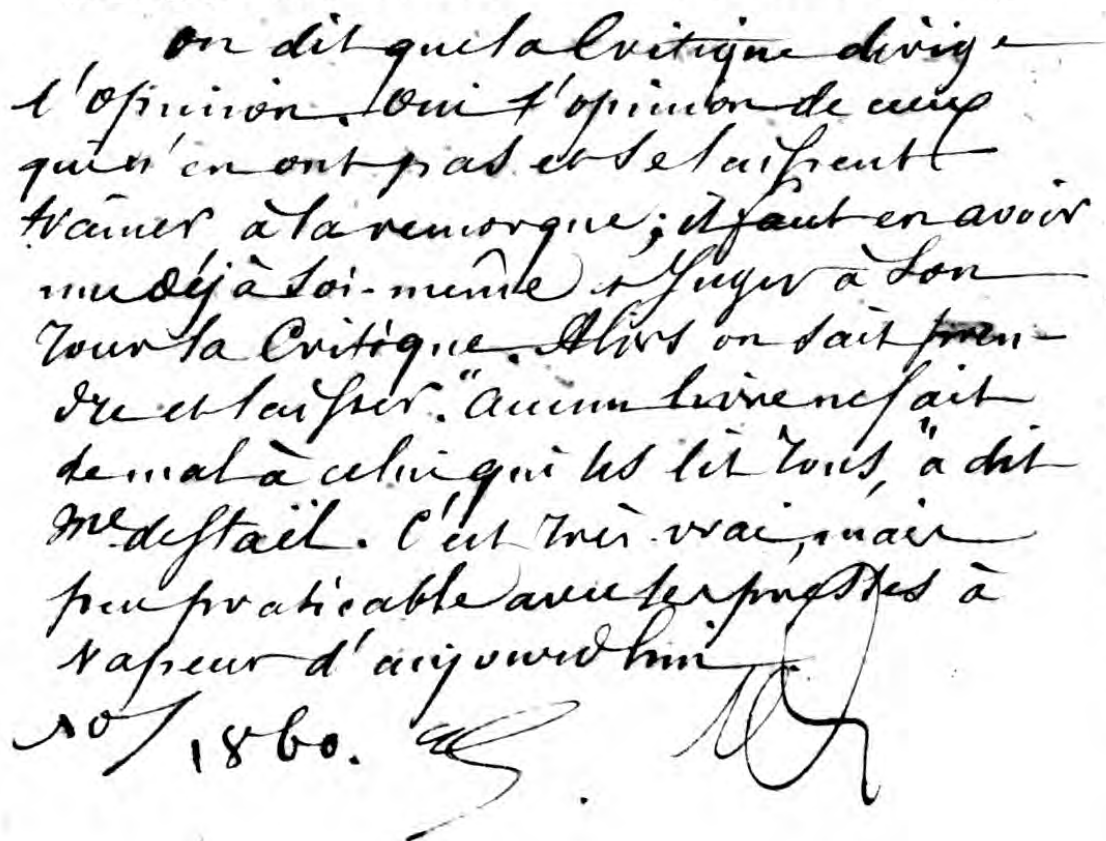 On dit que la Critique dirige
l'opinion. Oui l'opinion de ceux
qui n'en ont pas et se laissent
traîner à la remorque ; il faut en avoir
une déjà soi-même et juger à son
tour la Critique. Alors on sait pren-
dre et laisser. "Aucun livre ne fait
de mal à celui qui les lit tous," a dit
Me de Staël. C'est très vrai, mais
peu praticable avec les presses à
vapeur d'aujourd'hui.
1860.